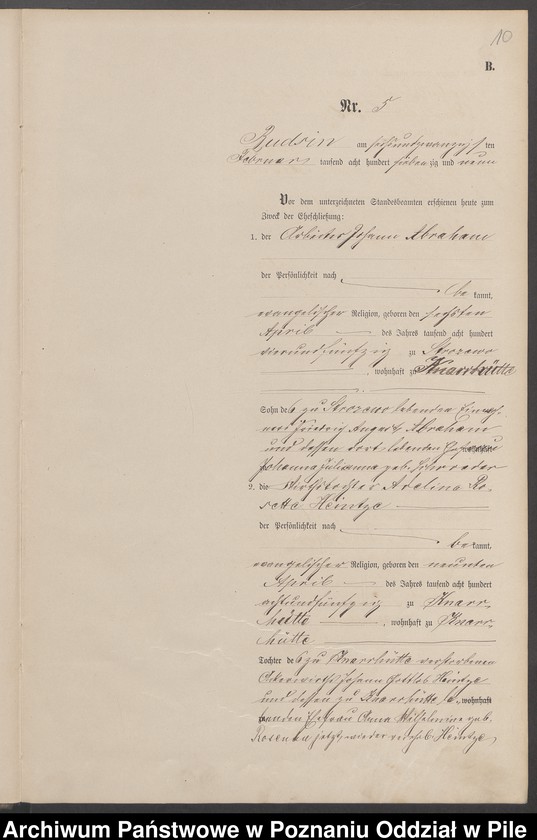 10
B.
Nr. 5
Budsin am sechsundzwanzigsten
Februar tausend acht hundert siebenzig und neun
Vor dem unterzeichneten Standesbeamten erschienen heute zum
Zweck der Eheschließung:
1. der Arbeiter Johann Abraham
der Persönlichkeit nach
be kannt,
evangelischer Religion, geboren den sechsten
April des Jahres tausend acht hundert
vierundfünfzig zu Strozewo
, wohnhaft zu Knarrhütte
Sohn des zu Strozewo lebenden Einwoh-
ners Friedrich August Abraham
und dessen dort lebenden Ehefrau
Johanna Julianna geb. Schroeder
2. die Wirthstochter Adeline Ro-
sette Heintze
der Persönlichkeit nach
be kannt,
evangelischer Religion, geboren den neunten
April des Jahres tausend acht hundert
achtundfünfzig zu Knarr-
hütte , wohnhaft zu Knarr-
hütte
Tochter des zu Knarrhütte verstorbenen
Ackerwirths Johann Gottlob Heintze
und dessen zu Knarrhütte le wohnhaft
benden Ehefrau Anna Wilhelmine geb.
Rosenau jetzt wieder verehel. Heintze
Archiwum Państwowe w Poznaniu Oddział w Pile